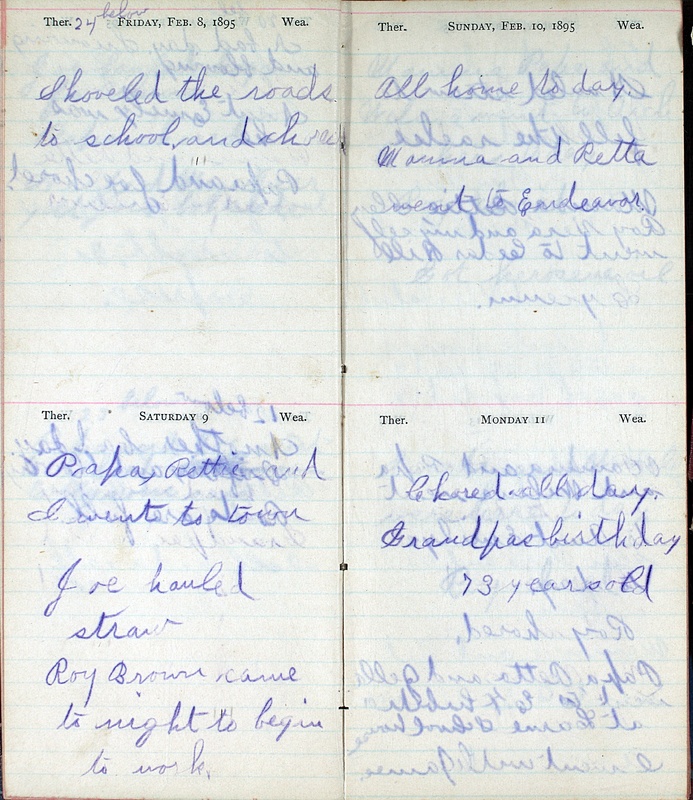 Ther. 24 below FRIDAY, FEB. 8, 1895 Wea.
Shoveled the roads
to school, and
SATURDAY 9
Ther. Wea.
Papa, Rettie and
I went to town
Joe hauled
straw
Roy Brown came
to night to begin
to work.
Ther. SUNDAY, FEB. 10, 1895 Wea.
All home to day
Mamma and Retta
went to Endeavor.
Ther. MONDAY 11 Wea.
Chored all day.
Grandpas birthday
73 years old